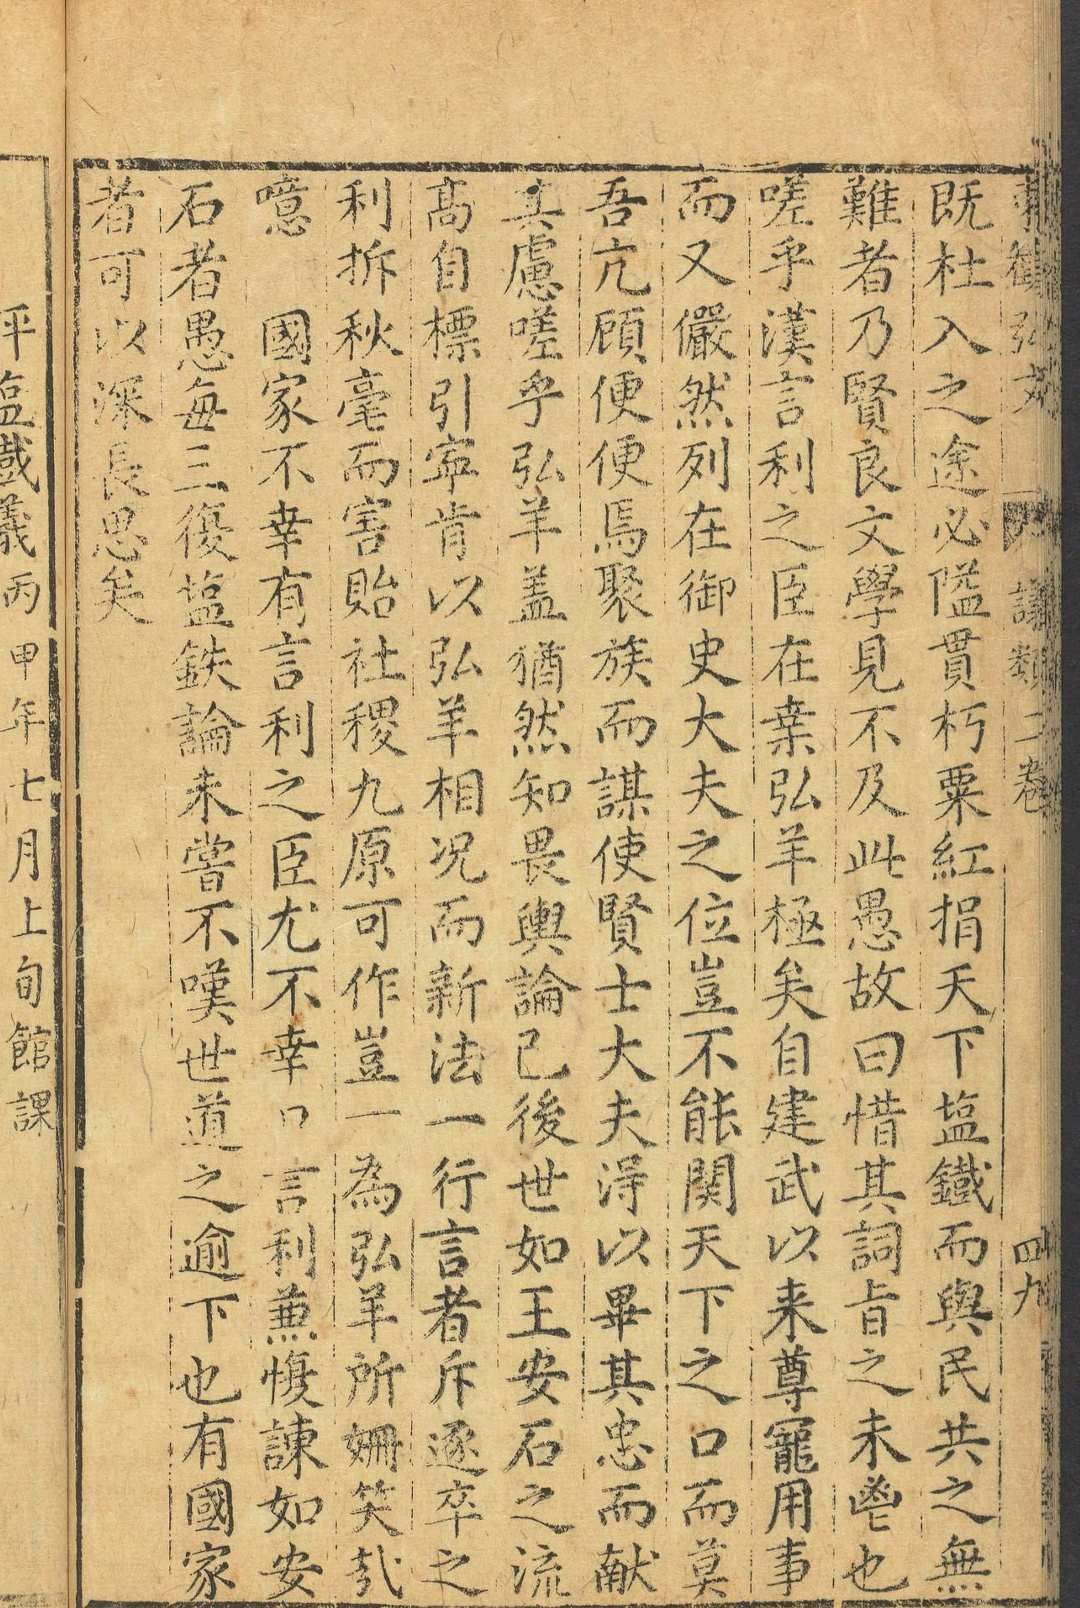 觀弘文 議類二卷 四九
既杜入之途必隘貫朽粟紅捐天下塩鐵而與民共之無
難者乃賢良文學見不及此愚故曰惜其詞旨之未鬯也
嗟乎漢言利之臣在桒弘羊極矣自建武以来尊寵用事
而又儼然列在御史大夫之位豈不能関天下之口而莫
吾亢顧便便焉聚族而謀使賢士大夫淂以畢其忠而献
其慮嗟乎弘羊盖猶然知畏輿論已後世如王安石之流
高自標引寕肯以弘羊相况而新法一行言者斥逐卒之
利拆秋毫而害貽社稷九原可作豈一為弘羊所姍笑哉
噫 國家不幸有言利之臣尤不幸口言利兼愎諫如安
石者愚每三復塩鉄論未嘗不嘆世道之逾下也有國家
者可以深長思矣
評塩鐵議丙甲年七月上旬館課